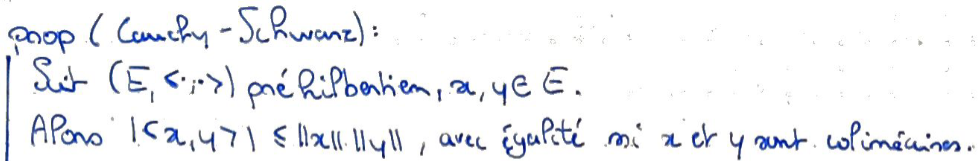 prop (Cauchy-Schwarz):
Soit (E, <·;·>) préhilbertien, x, y ∈ E.
Alors |<x, y>| ≤ ||x||.||y||, avec égalité ssi x et y sont colinéaires.